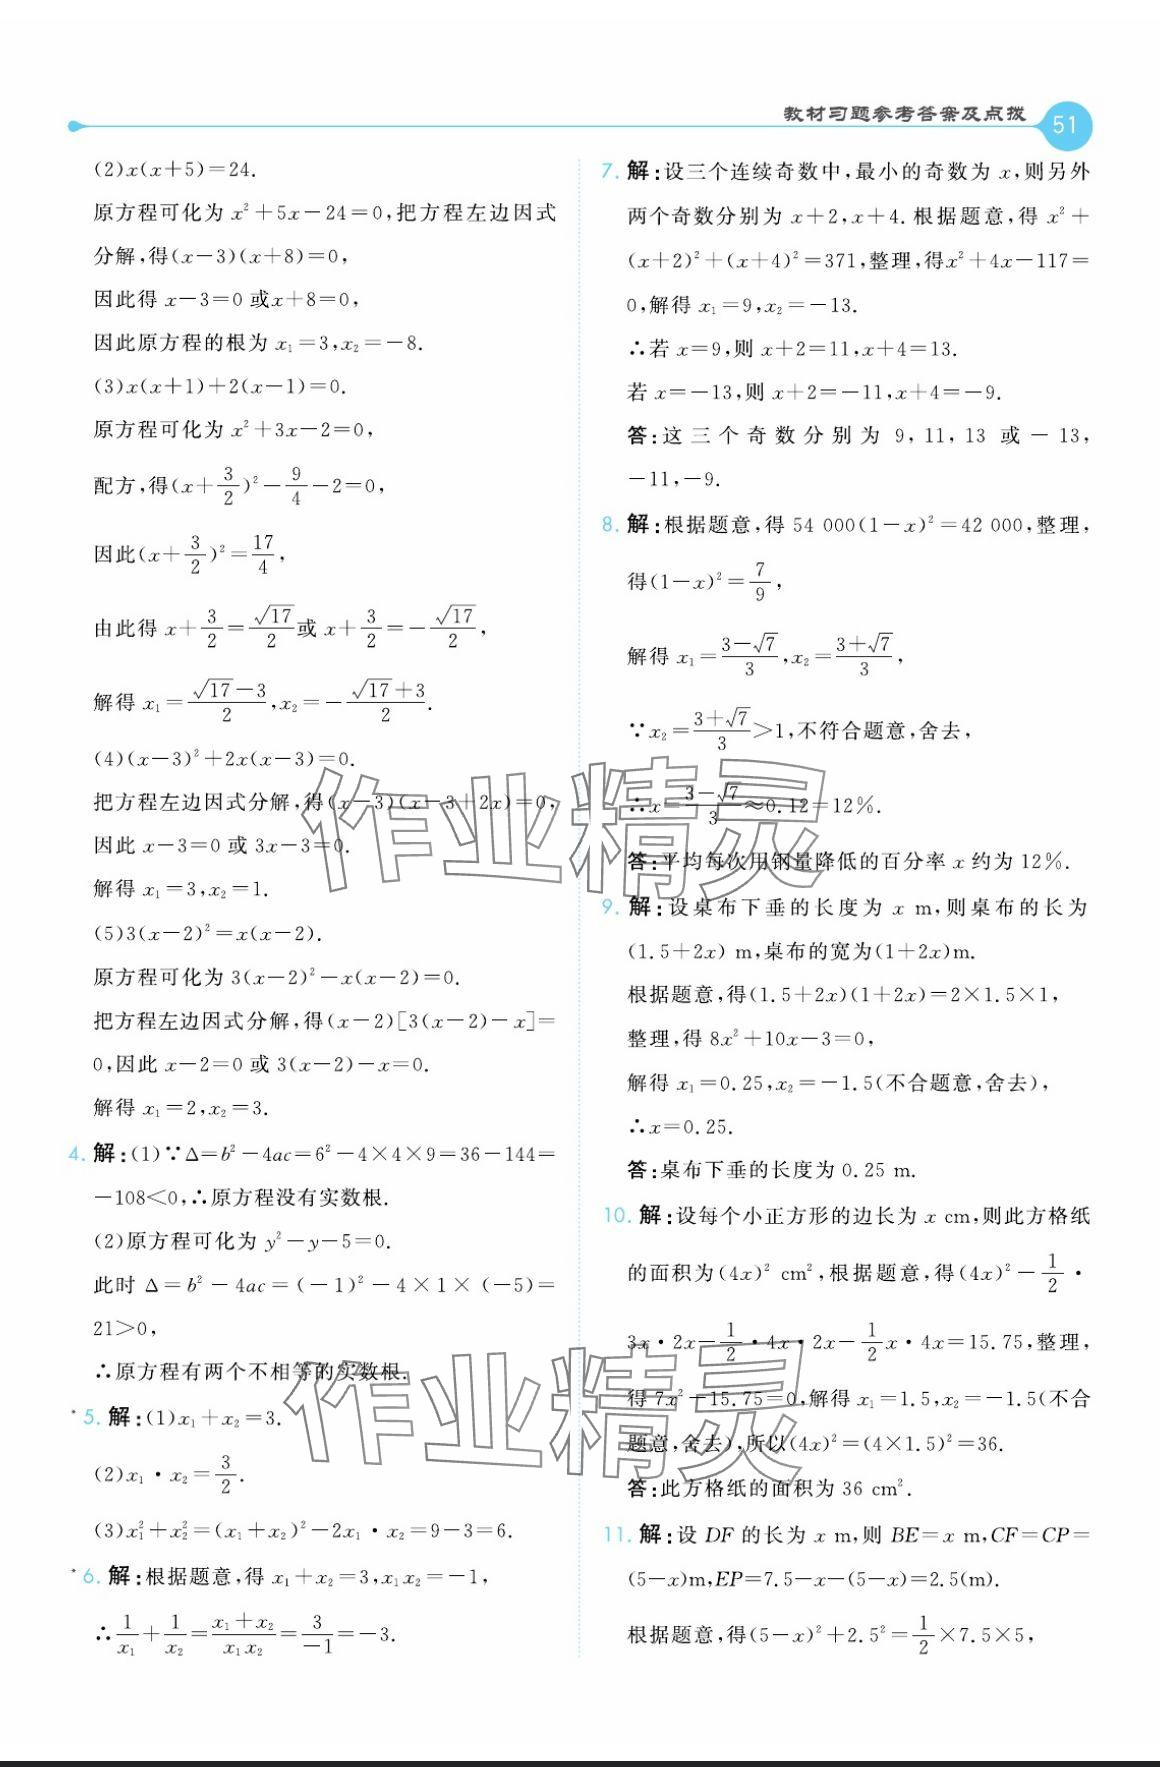 教材习题参考答案及点拨
51
(2)x(x+5)=24.
原方程可化为 x²+5x-24=0,把方程左边因式
分解,得(x-3)(x+8)=0,
因此得 x-3=0 或x+8=0,
因此原方程的根为 x₁=3,x₂=-8.
(3)x(x+1)+2(x-1)=0.
原方程可化为 x²+3x-2=0,
配方,得(x+3/2)²-9/4-2=0,
因此(x+3/2)²=17/4,
由此得 x+3/2=√17/2或 x+3/2=-√17/2,
解得 x₁=(√17-3)/2,x₂=-(√17+3)/2.
(4)(x-3)²+2x(x-3)=0.
把方程左边因式分解,得(x-3)(x-3+2x)=0,
因此 x-3=0 或 3x-3=0.
解得 x₁=3,x₂=1.
(5)3(x-2)²=x(x-2).
原方程可化为 3(x-2)²-x(x-2)=0.
把方程左边因式分解,得(x-2)[3(x-2)-x]=
0,因此 x-2=0 或 3(x-2)-x=0.
解得 x₁=2,x₂=3.
4. 解:(1)∵Δ=b²-4ac=6²-4×4×9=36-144=
-108<0,∴原方程没有实数根.
(2)原方程可化为 y²-y-5=0.
此时 Δ=b²-4ac=(-1)²-4×1×(-5)=
21>0,
∴原方程有两个不相等的实数根.
*5. 解:(1)x₁+x₂=3.
(2)x₁·x₂=3/2.
(3)x₁²+x₂²=(x₁+x₂)²-2x₁·x₂=9-3=6.
*6. 解:根据题意,得 x₁+x₂=3,x₁x₂=-1,
∴1/x₁+1/x₂=(x₁+x₂)/(x₁x₂)=3/(-1)=-3.
7. 解:设三个连续奇数中,最小的奇数为 x,则另外
两个奇数分别为 x+2,x+4. 根据题意,得 x²+
(x+2)²+(x+4)²=371,整理,得x²+4x-117=
0,解得 x₁=9,x₂=-13.
∴若 x=9,则 x+2=11,x+4=13.
若 x=-13,则 x+2=-11,x+4=-9.
答:这三个奇数分别为 9,11,13 或-13,
-11,-9.
8. 解:根据题意,得 54 000(1-x)²=42 000,整理,
得(1-x)²=7/9,
解得 x₁=(3-√7)/3,x₂=(3+√7)/3,
∵x₂=(3+√7)/3>1,不符合题意,舍去,
∴x=(3-√7)/3≈0.12=12%.
答:平均每次用钢量降低的百分率 x 约为 12%.
9. 解:设桌布下垂的长度为 x m,则桌布的长为
(1.5+2x) m,桌布的宽为(1+2x)m.
根据题意,得(1.5+2x)(1+2x)=2×1.5×1,
整理,得 8x²+10x-3=0,
解得 x₁=0.25,x₂=-1.5(不合题意,舍去),
∴x=0.25.
答:桌布下垂的长度为 0.25 m.
10. 解:设每个小正方形的边长为 x cm,则此方格纸
的面积为(4x)² cm²,根据题意,得(4x)²-1/2·
3x·2x-1/2·4x·2x-1/2x·4x=15.75,整理,
得 7x²-15.75=0,解得 x₁=1.5,x₂=-1.5(不合
题意,舍去),所以(4x)²=(4×1.5)²=36.
答:此方格纸的面积为 36 cm².
11. 解:设 DF 的长为 x m,则 BE=x m,CF=CP=
(5-x)m,EP=7.5-x-(5-x)=2.5(m).
根据题意,得(5-x)²+2.5²=1/2×7.5×5,
作业精灵
作业精灵